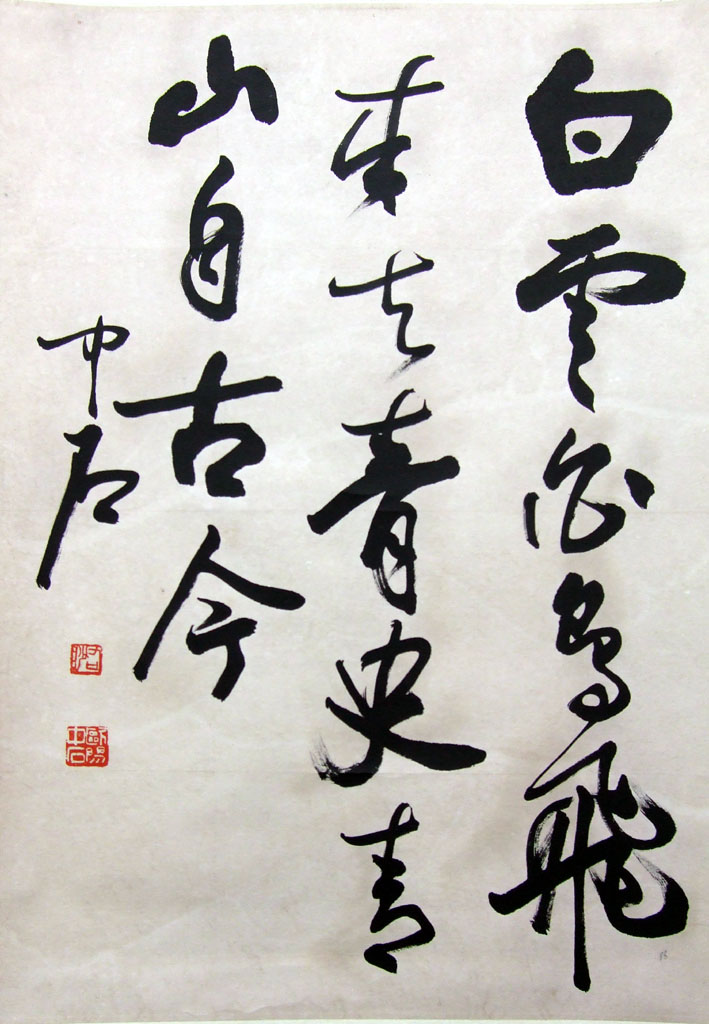 白雲白鳥飛
來去青史青
山自古今
中石
歐陽中石